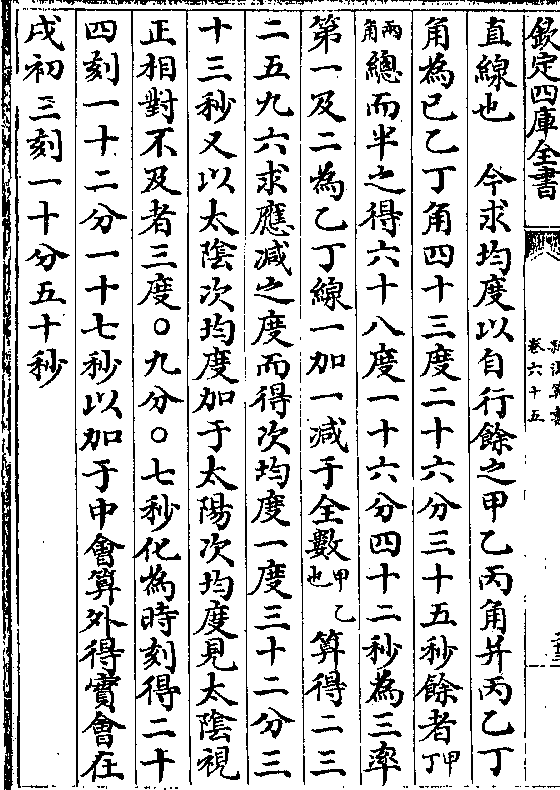 欽定四庫全書
卷六十五
直線也　今求均度以自行餘之甲乙丙角并丙乙丁
角為已乙丁角四十三度二十六分三十五秒餘者甲丁
兩角總而半之得六十八度一十六分四十二秒為三率
第一及二為乙丁線一加一減于全數甲乙也算得二三
二五九六求應減之度而得次均度一度三十二分三
十三秒又以太陰次均度加于太陽次均度見太陰視
正相對不及者三度〇九分〇七秒化為時刻得二十
四刻一十二分一十七秒以加于中會算外得實會在
戌初三刻一十分五十秒